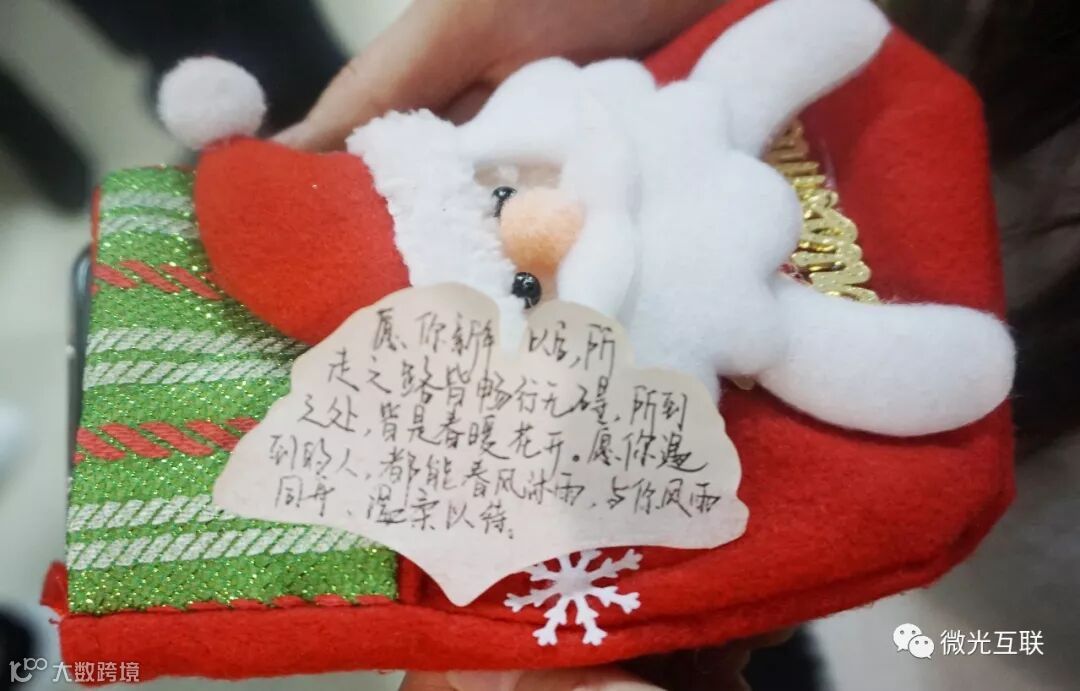 愿你新年 以后,所
走之路皆畅行无碍,所到
之处,皆是春暖花开。愿你遇
到的人,都能春风沐雨,与你风雨
同舟、温柔以待。
微光互联
10100 大数跨境